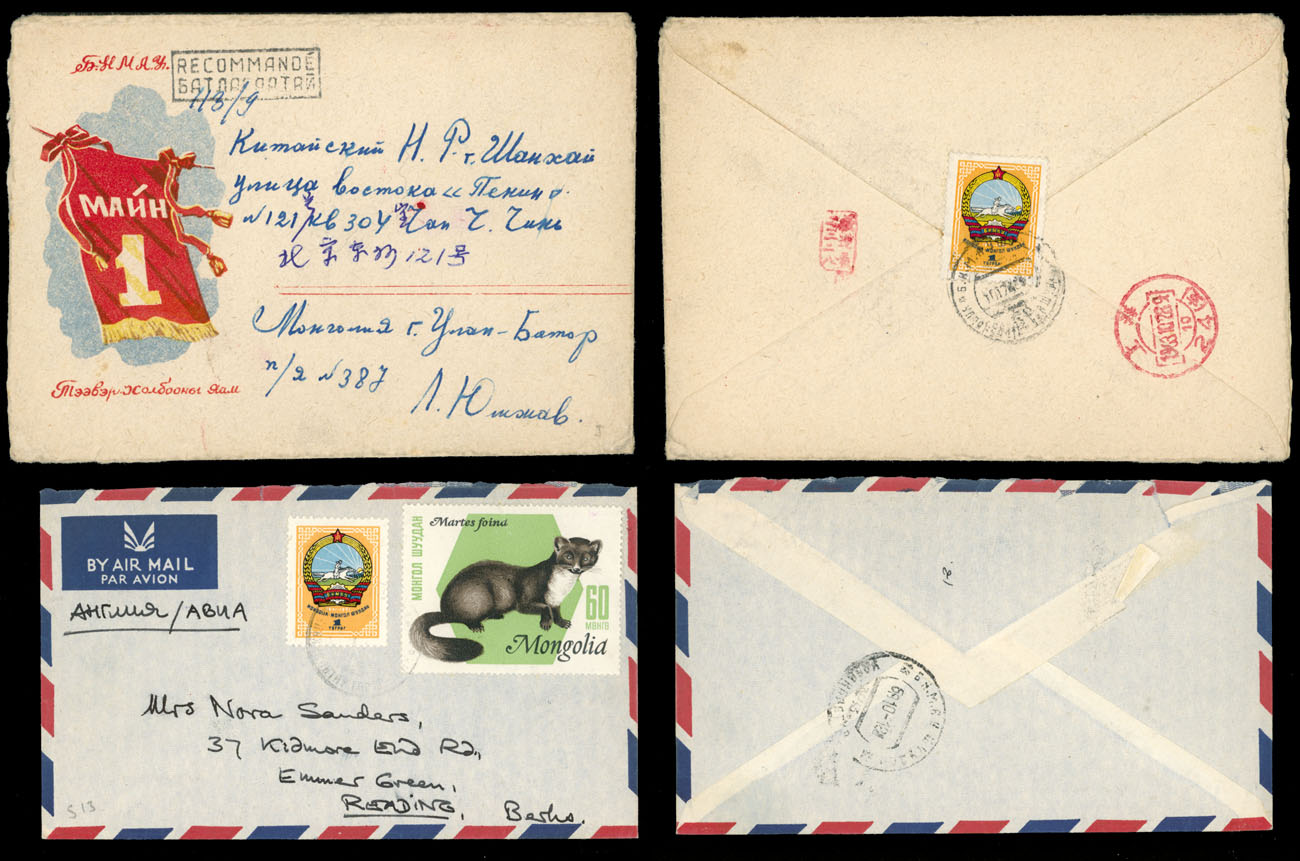 Б.Н.М.А.У.
RECOMMANDÉ
МАЙН
1
Китайский Н. Р. г. Шанхай
улица востока «Пекин»
№121 кв 304 Чан Ч. Чинь
北京东路121号
Монголия г. Улан-Батор
п/я №387
Л. Юмжав.
Тээвэр-Холбооны Яам
1
ТӨГРӨГ
上海
BY AIR MAIL
PAR AVION
АНГЛИЯ/АВИА
MONGOLIA-МОНГОЛ ШУУДАН
1
ТӨГРӨГ
Martes foina
МОНГОЛ ШУУДАН
60
МӨНГӨ
Mongolia
Mrs Nora Sanders,
37 Kidmore End Rd.,
Emmer Green,
READING, Berks.
S 13